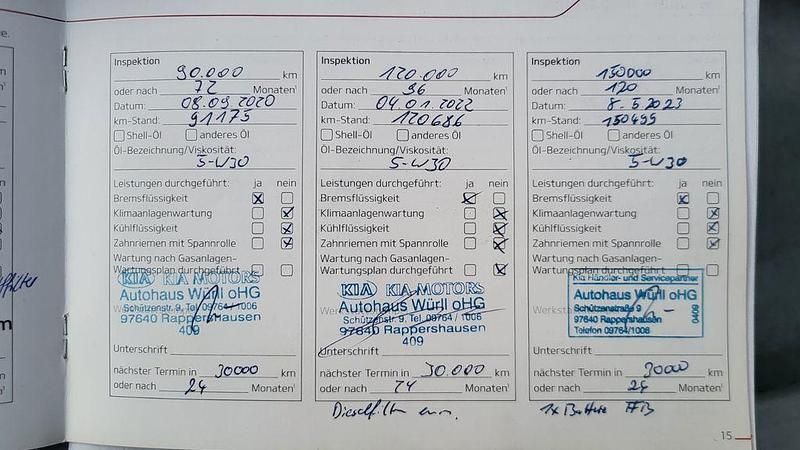 Inspektion
90.000 km
oder nach 72 Monaten¹
Datum: 08.09.2020
km-Stand: 91175
Shell-Öl anderes Öl
Öl-Bezeichnung/Viskosität:
5-W30
Leistungen durchgeführt: ja nein
Bremsflüssigkeit
Klimaanlagenwartung
Kühlflüssigkeit
Zahnriemen mit Spannrolle
Wartung nach Gasanlagen-
Wartungsplan durchgeführt
KIA KIA MOTORS
Autohaus Würll oHG
Schützenstr. 9, Tel. 09764 / 1006
97640 Rappershausen
409
Unterschrift
nächster Termin in 30000 km
oder nach 24 Monaten¹
Inspektion
120.000 km
oder nach 96 Monaten¹
Datum: 04.01.2022
km-Stand: 120686
Shell-Öl anderes Öl
Öl-Bezeichnung/Viskosität:
5-W30
Leistungen durchgeführt: ja nein
Bremsflüssigkeit
Klimaanlagenwartung
Kühlflüssigkeit
Zahnriemen mit Spannrolle
Wartung nach Gasanlagen-
Wartungsplan durchgeführt
KIA KIA MOTORS
Autohaus Würll oHG
Schützenstr. 9, Tel. 09764 / 1006
97640 Rappershausen
409
Unterschrift
nächster Termin in 30.000 km
oder nach 24 Monaten¹
Inspektion
150000 km
oder nach 120 Monaten¹
Datum: 8.5.2023
km-Stand: 150499
Shell-Öl anderes Öl
Öl-Bezeichnung/Viskosität:
5-W30
Leistungen durchgeführt: ja nein
Bremsflüssigkeit
Klimaanlagenwartung
Kühlflüssigkeit
Zahnriemen mit Spannrolle
Wartung nach Gasanlagen-
Wartungsplan durchgeführt
Kia Händler- und Servicepartner
Autohaus Würll oHG
Schützenstraße 9
97640 Rappershausen
Telefon 09764/1006
0409
Unterschrift
nächster Termin in 30000 km
oder nach 24 Monaten¹
Dieselfilter ern.
1x Batterie
15